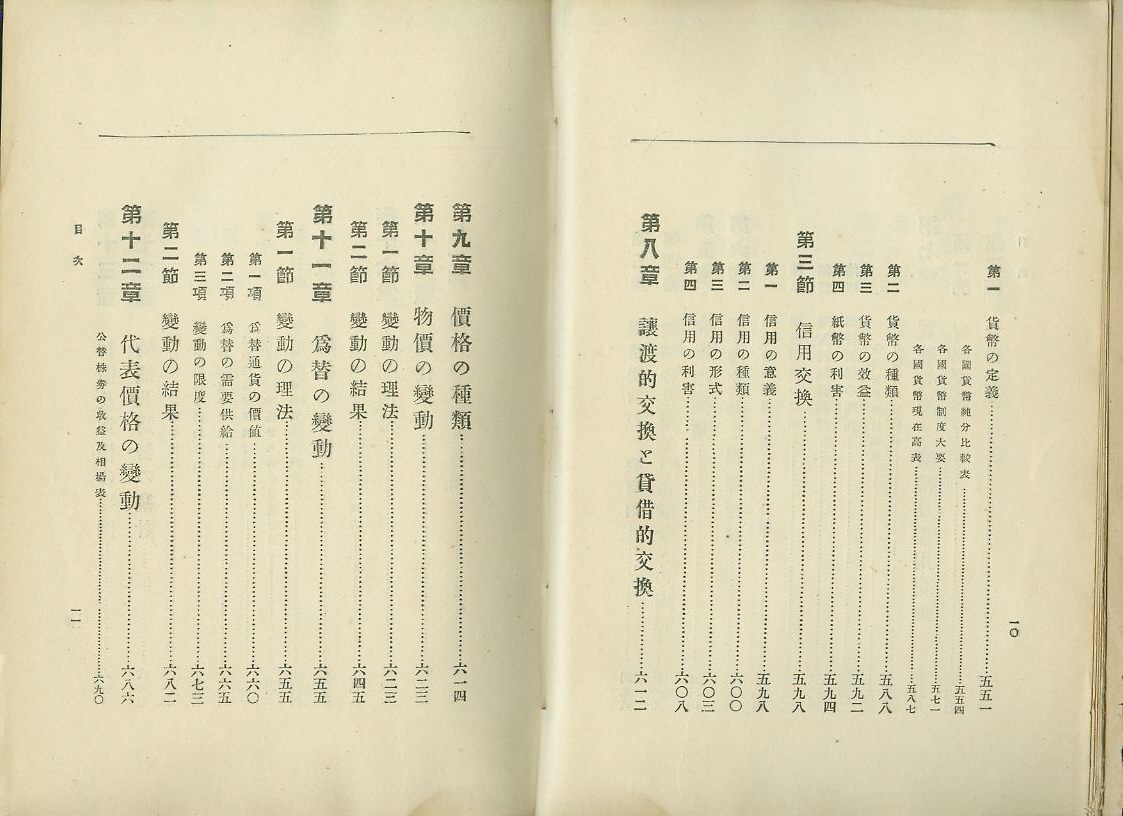 第一 貨幣の定義……五五一
各國貨幣純分比較表……五五四
各國貨幣制度大要……五七一
各國貨幣現在高表……五八七
第二 貨幣の種類……五八八
第三 貨幣の效益……五九二
第四 紙幣の利害……五九四
第三節 信用交換……五九八
第一 信用の意義……五九八
第二 信用の種類……六〇〇
第三 信用の形式……六〇三
第四 信用の利害……六〇八
第八章 讓渡的交換と貸借的交換……六一二
一〇
第九章 價格の種類……六一四
第十章 物價の變動……六二三
第一節 變動の理法……六二三
第二節 變動の結果……六四五
第十一章 爲替の變動……六五五
第一節 變動の理法……六五五
第一項 爲替通貨の價値……六六〇
第二項 爲替の需要供給……六六五
第三項 變動の限度……六七三
第二節 變動の結果……六八二
第十二章 代表價格の變動……六八六
公替株劵の收益及相場表……六九〇
目次
一一